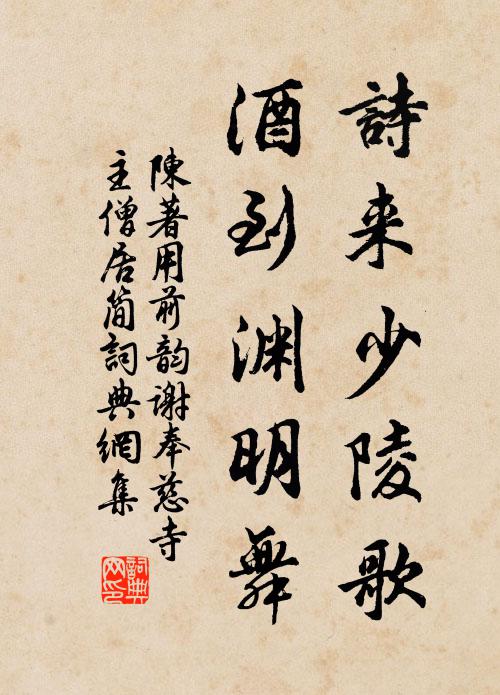 詩来少陵歌
酒到渊明舞
陳著用前韵谢奉慈寺
主僧居简詞典網集
詞典
网印